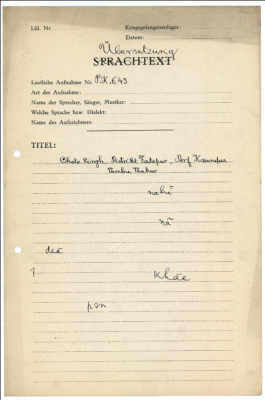 Lfd. Nr.
Kriegsgefangenenlager:
Datum:
Übersetzung
SPRACHTEXT
Lautliche Aufnahme Nr. P.K. 643
Art der Aufnahme:
Name der Sprecher, Sänger, Musiker:
Welche Sprache bzw. Dialekt:
Name des Aufzeichners:
TITEL:
Chote Singh, Distrikt Fatepur, Dorf
nahĩ
nā
deā
1 khāe
pon